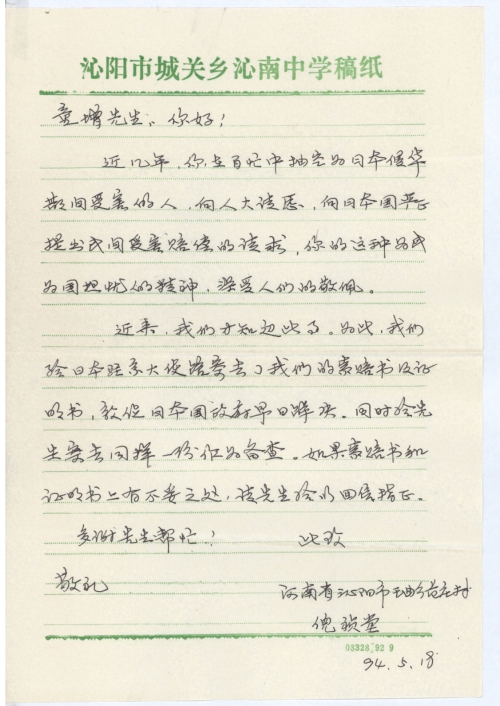 沁阳市城关乡沁南中学稿纸
童增先生、你好！
近几年，你在百忙中抽空为日本侵华
期间受害的人，向人大请愿，向日本国严正
提出民间受害赔偿的请求，你的这种为民
为国担忧的精神，深受人们的敬佩。
近来，我们才知道此事。为此，我们
给日本驻京大使馆寄去了我们的索赔书及证
明书，敦促日本国政府早日解决。同时给先
生寄去同样一份作为备查。如果索赔书和
证明书上有不妥之处，请先生给以回信指正。
多谢先生帮忙！ 此致
敬礼
河南省沁阳市王曲乡 庄村
倪 堂
03328.92 9
94.5.18